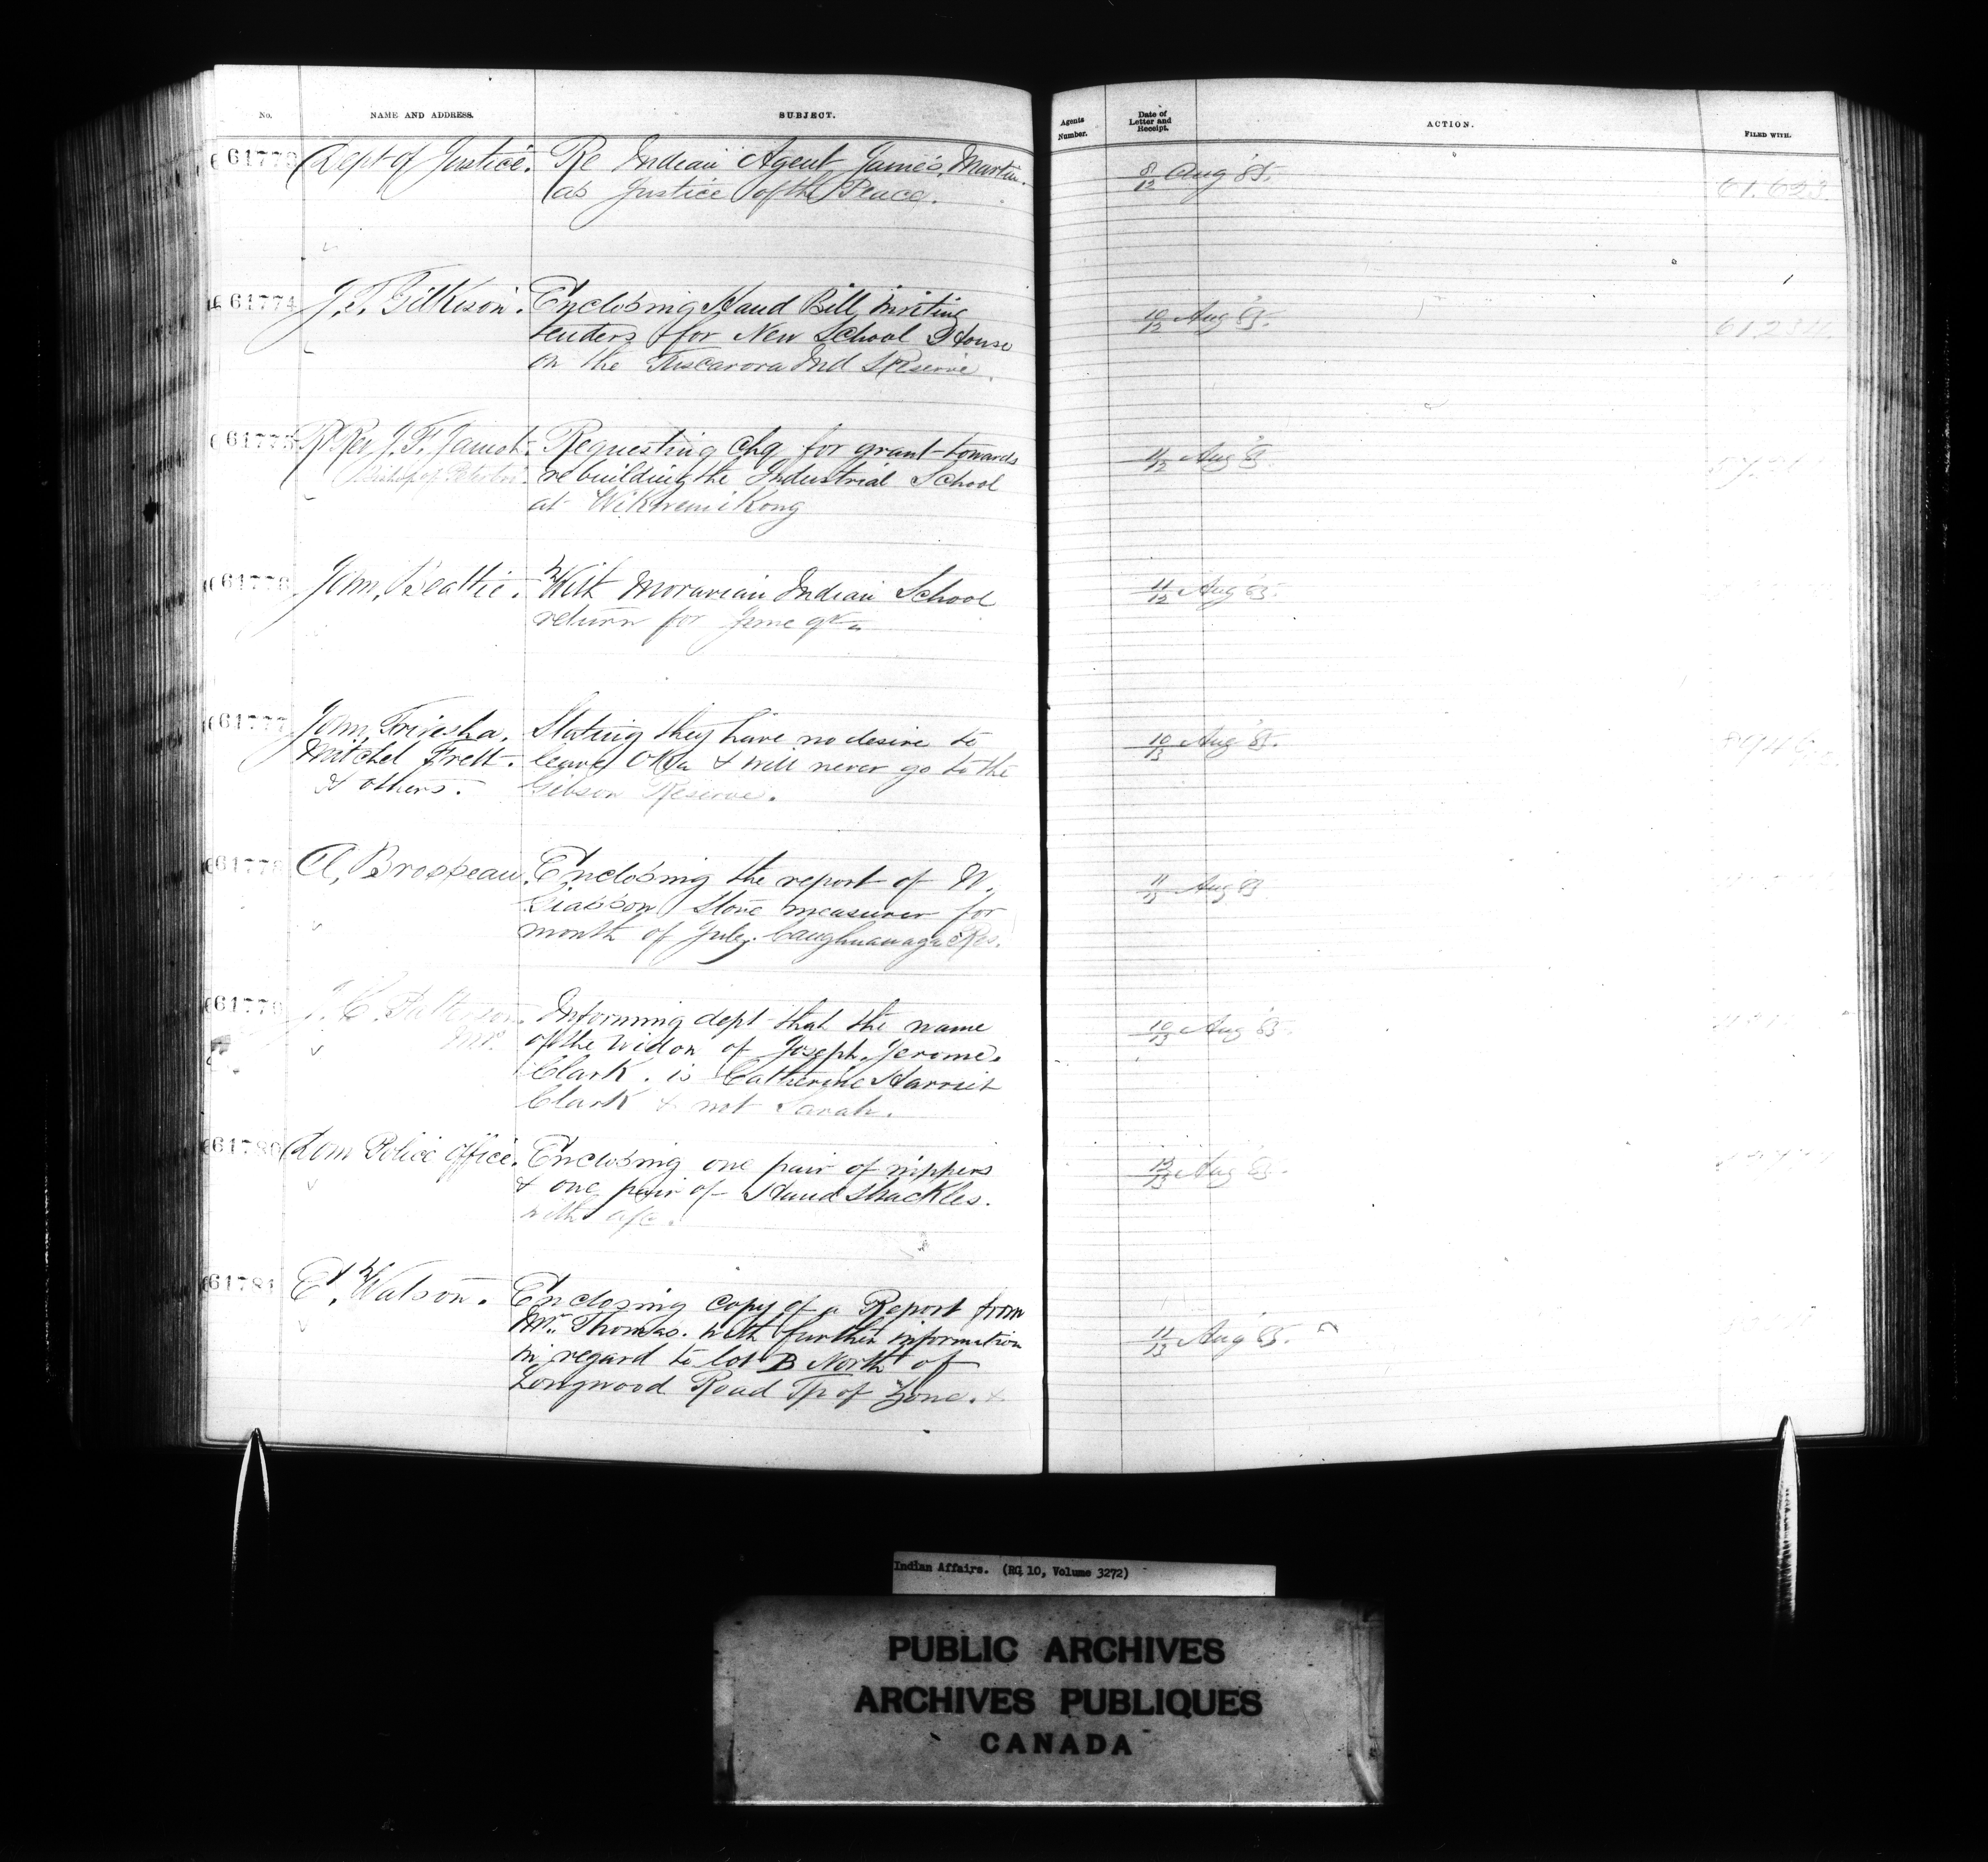 No. NAME AND ADDRESS. SUBJECT. Agents Number. Date of Letter and Receipt. ACTION. FILED WITH.
61773 Dept of Justice. Re Indian Agent James, Martin. 8/12 Aug '85. 61.623.
as Justice of the Peace.
61774 J. T. Gilkison. Enclosing Hand Bill, inviting 10/12 Aug '85. 61,234.
tenders for New School House
on the Tuscarora Ind Reserve.
61775 Rt Rev J. F. Jamot. Requesting chq for grant towards 11/12 Aug '85.
Bishop of Peterboro. rebuilding the Industrial School
at Wikwemikong
61776 John, Beattie. With Moravian Indian School 11/12 Aug '85.
return for June qr
61777 John, Stating they have no desire to 10/13 Aug '85.
Mitchel & others. leave Oka & will never go to the
Gibson Reserve.
61778 A, Brosseau. Enclosing the report of W. 11/13 Aug '85
Giasson Stone measurer for
month of July. Caughnawaga Res.
61779 J. C. Patterson. Informing dept that the name 10/13 Aug '85.
M.P. of the Widow of Joseph, Jerome.
Clark. is Catherine Harriet
Clark & not Sarah.
61780 Dom Police office. Enclosing one pair of nippers 12/13 Aug '85.
& one pair of Hand Shackles.
with a/c.
61781 E, Watson. Enclosing copy of a Report from
Mr. Thomas. with further information 11/13 Aug '85.
in regard to lot B North of
Longwood Road Tp of Zone.
Indian Affairs. (RG 10, Volume 3272)
PUBLIC ARCHIVES
ARCHIVES PUBLIQUES
CANADA